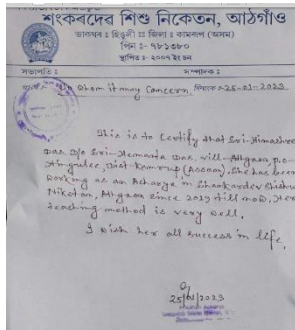 শংকৰদেৱ শিশু নিকেতন, আঠগাঁও
ডাকঘৰ : হিঙুলী :: জিলা : কামৰূপ (অসম)
পিন :- ৭৮১৩৮০
স্থাপিত : ২০০৭ ইং চন
সভাপতি : সম্পাদক :
To Whom it may Concern দিনাংক :-25-01-2023
This is to certify that Sri-Himashree
Das D/o Sri-Hemanta Das, vill-Athgaon, p.o-
Hingulee, Dist-Kamrup (Assam). She has been
working as an Acharya in Shankardev Shishu
Niketan, Athgaon since 2019 till now. Her
teaching method is very well.
I wish her all success in life.
25/01/2023